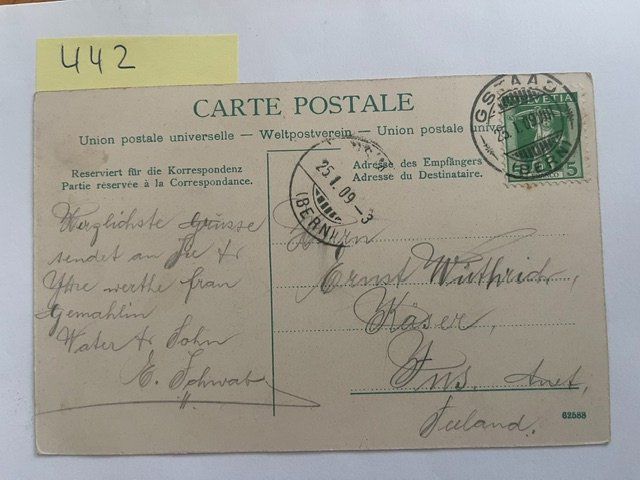 442
CARTE POSTALE
Union postale universelle — Weltpostverein — Union postale
Reserviert für die Korrespondenz
Partie réservée à la Correspondance.
Adresse des Empfängers
Adresse du Destinataire.
GSTAAD
25.I.09
(BERN)
HELVETIA
5
25.I.09-3
(BERN)
Herzlichste Grüsse
sendet an Sie &
Ihre werthe frau
Gemahlin
Vater & Sohn
E. Schwab
Herrn
Ernst Wüthrich,
Käser,
Ins, Anet,
Seeland.
62588